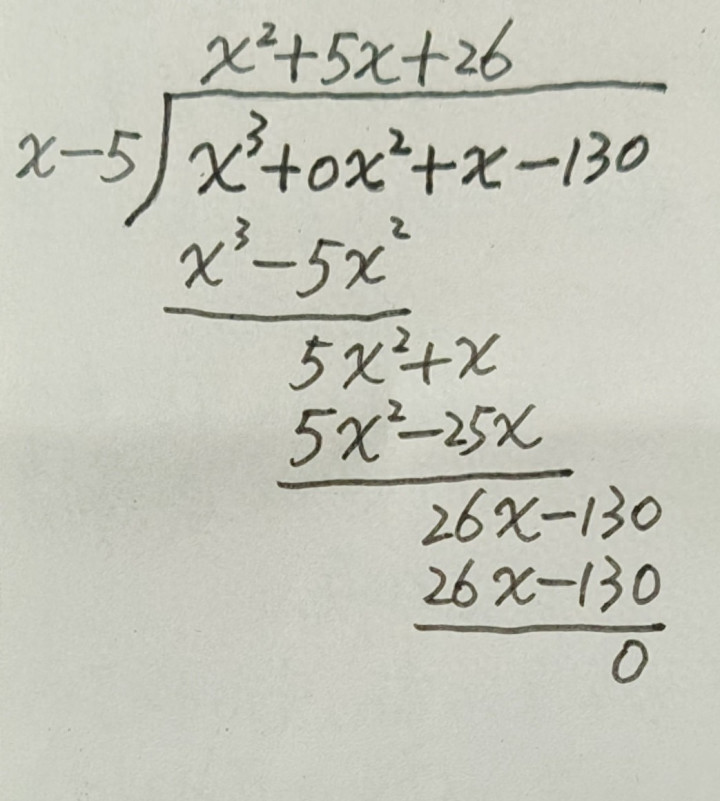 x²+5x+26
x-5)x³+0x²+x-130
x³-5x²
5x²+x
5x²-25x
26x-130
26x-130
0